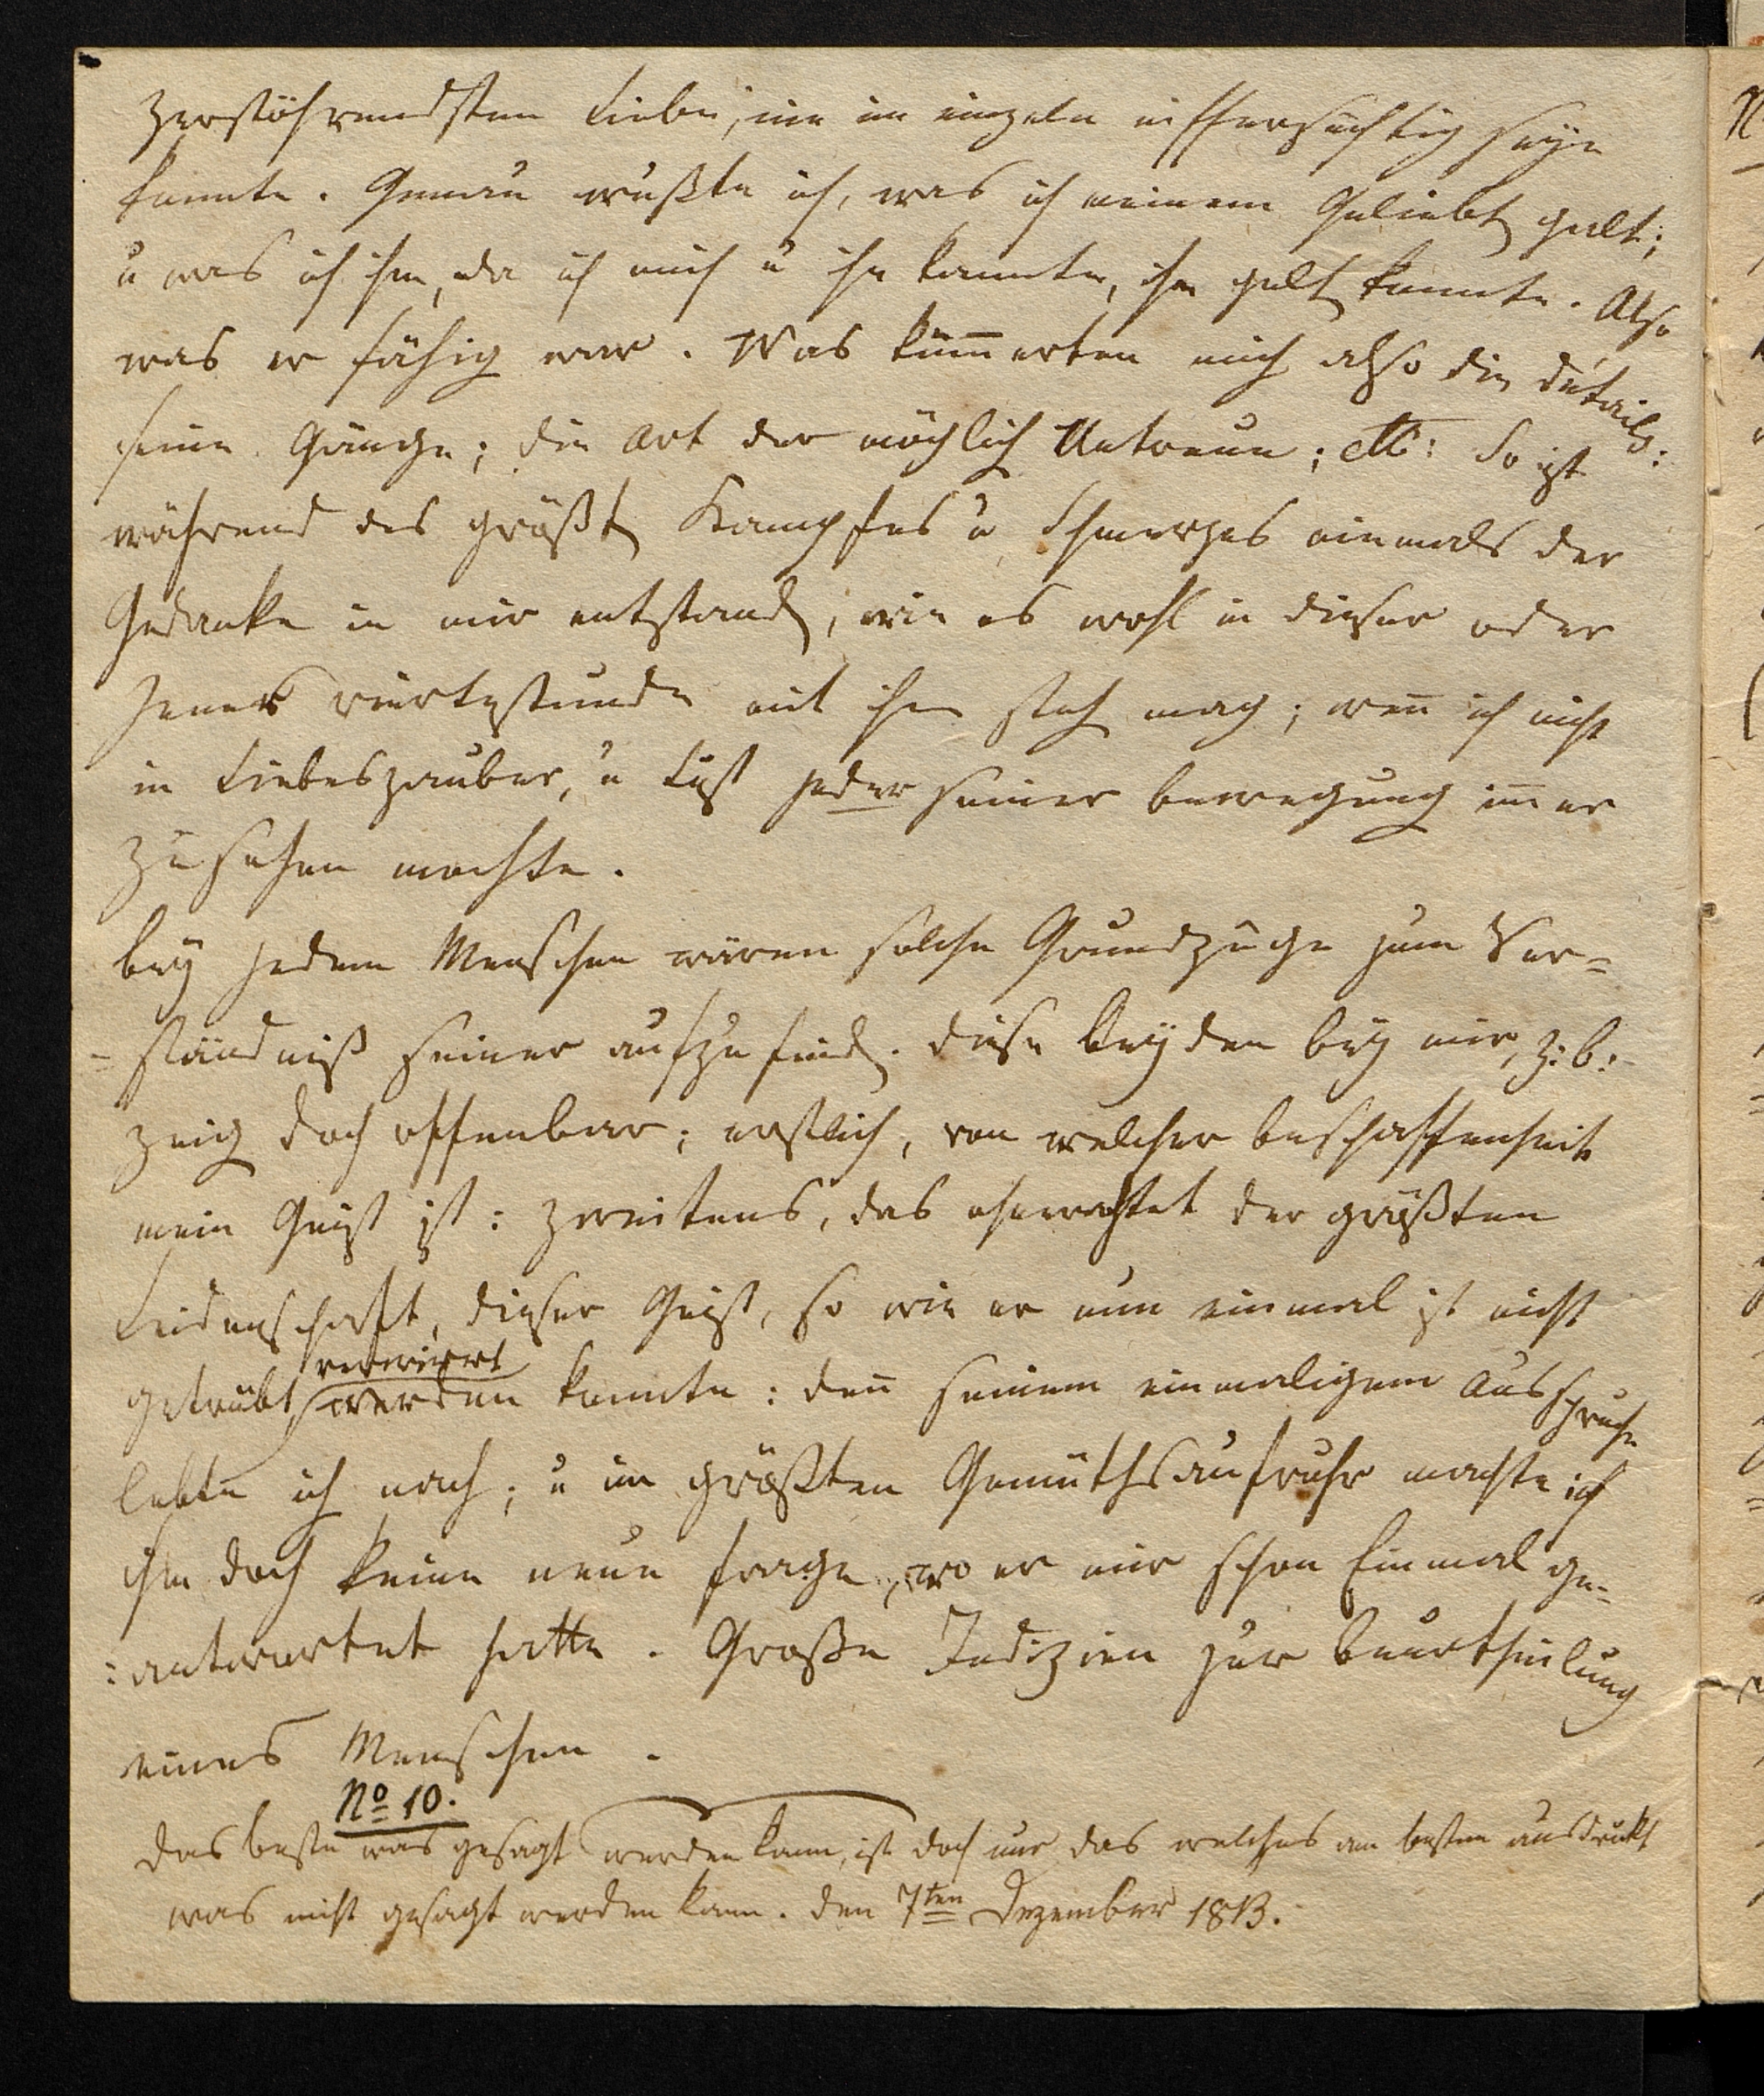 zerstöhrendsten Liebe, nie im einzeln eiffersüchtig seyn
konnte. Genau wußte ich, was ich meinem Geliebt galt;
u was ich ihm, da ich mich u ihn kannte, ihm gelt konnte. Also
was er fähig war. Was kümmerten mich also die détails:
seine Gänge; die Art der möglich Untreue; etc: So ist
während des größt Kampfes u Schmerzes niemals der
Gedanke in mir entstand, wie es wohl in dieser oder
jener viertelstunde mit ihm steh mag; wenn ich nicht
in Liebeszauber, u Lust jeder seiner bewegung immer
zusehen mochte.
bey jedem Menschen wären solche Grundzüge zum Ver=
=ständniß seiner aufzufind. diese beyden bey mir, z: b:
zeig doch offenbar; erstlich, von welcher beschaffenheit
mein Geist ist: zweitens, das ohnerachtet der größten
Leidenschaft, dieser Geist, so wie er nun einmal ist nicht
verwirrt
getrübt, werden konnte: denn seinem einmaligem Ausspruche
lebte ich nach; u im größten Gemüthsaufruhr machte ich
ihm doch keine neue frage, wo er mir schon Einmal ge=
:antwortet hatte. Große Indizien zur beurtheilung
eines Menschen.
No 10.
das beste was gesagt werden kann, ist doch nur das welches am besten ausdrückt
was nicht gesagt werden kann. den 7ten Dezember 1813.